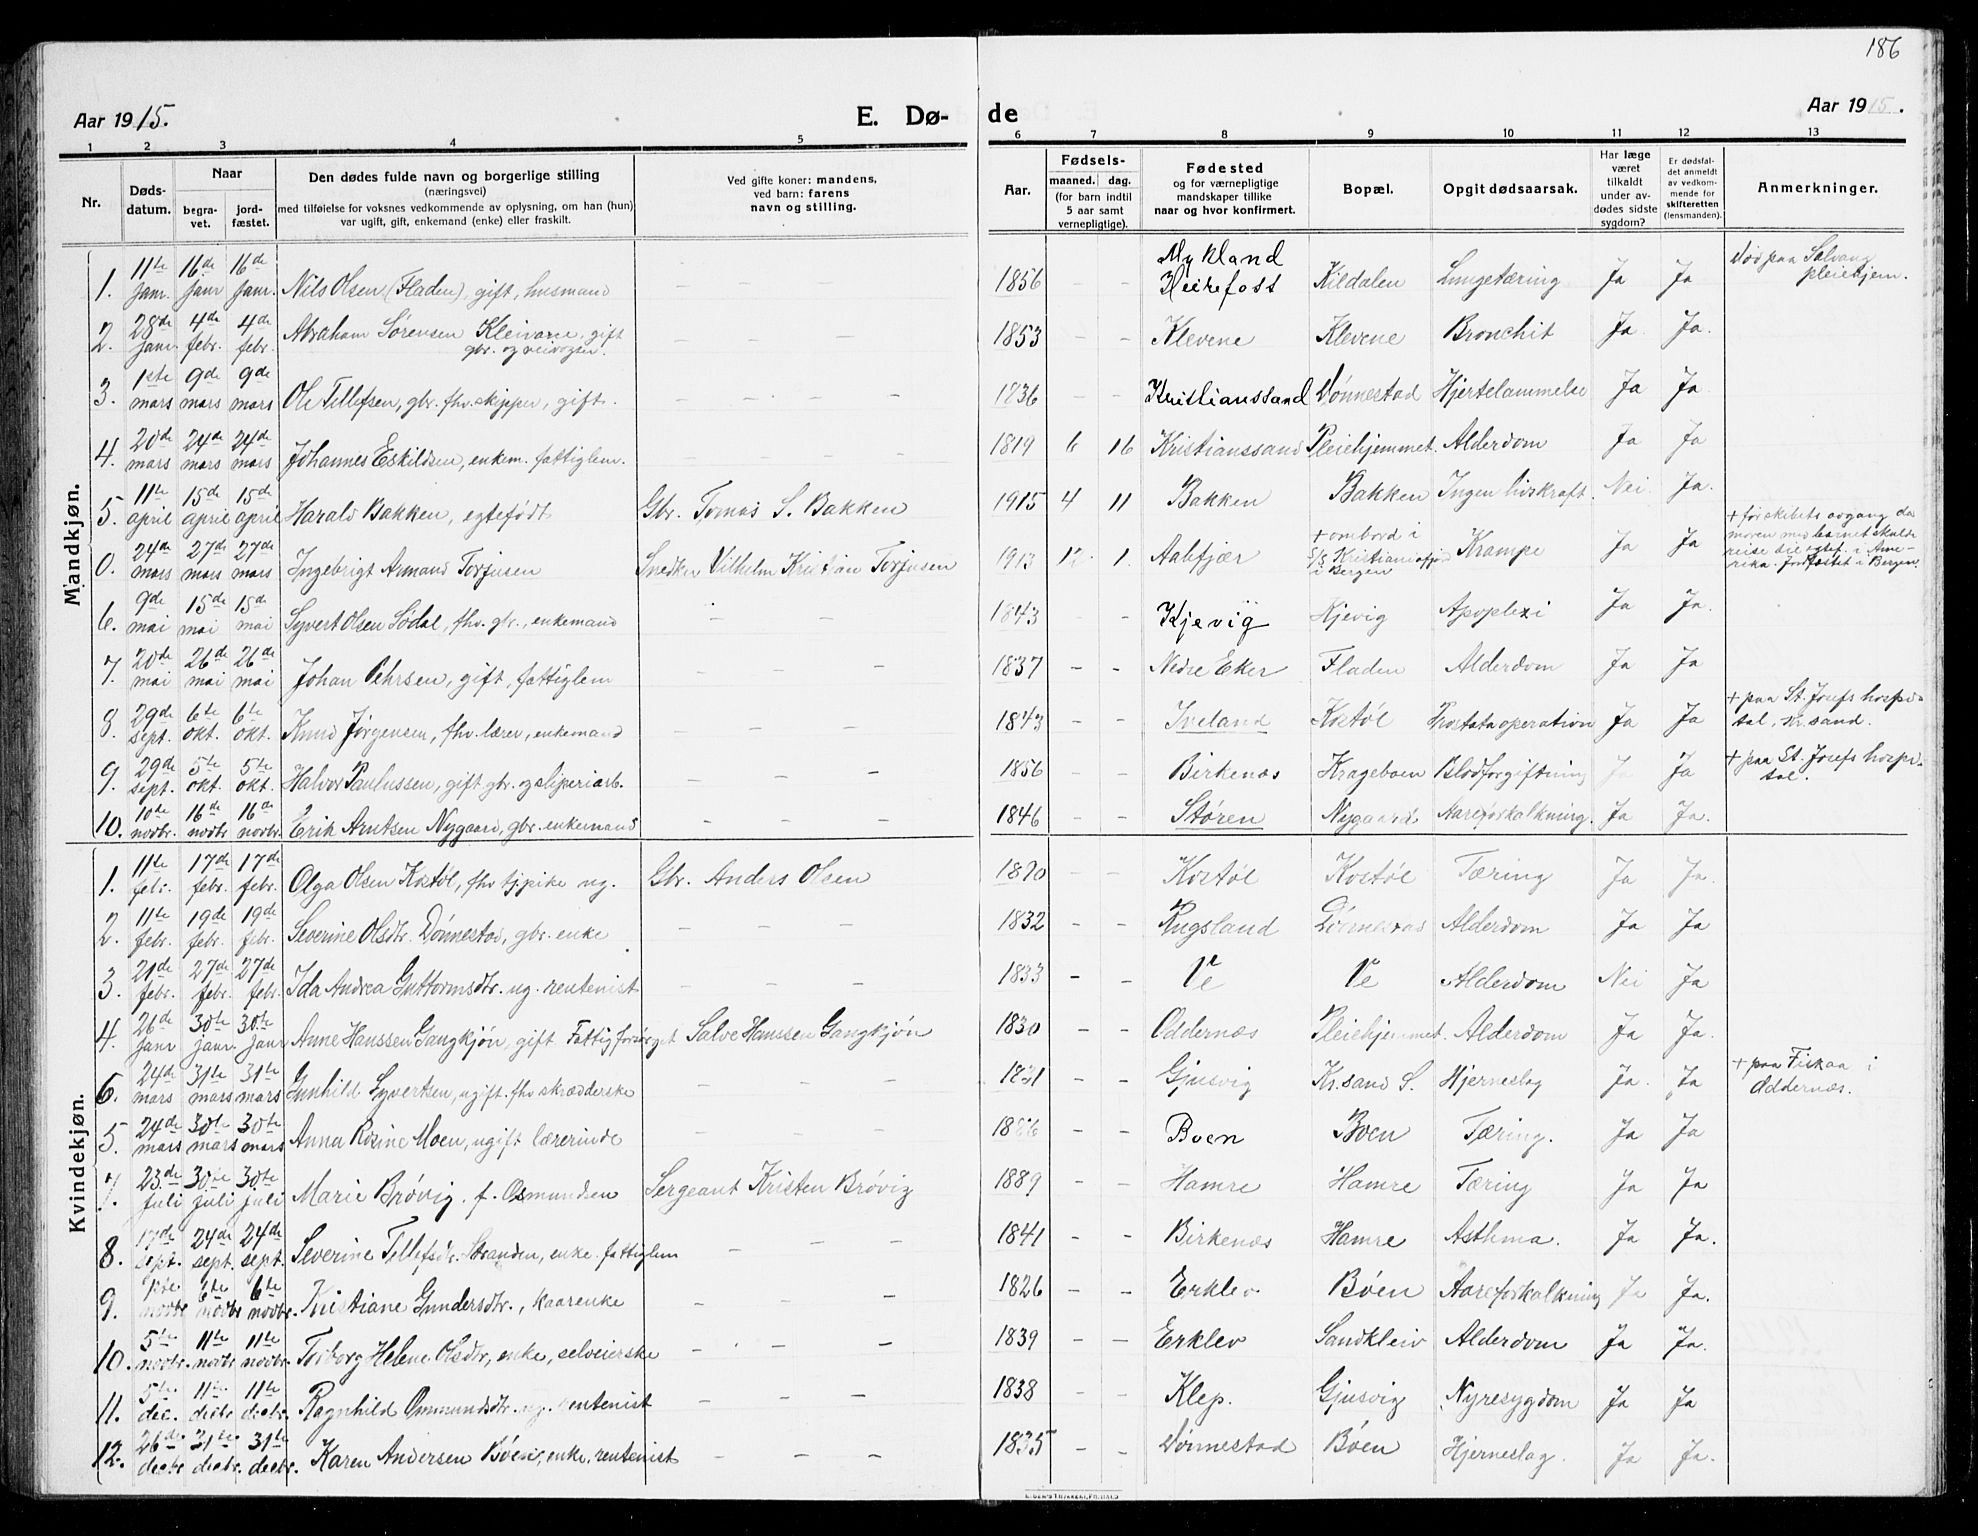 186
Aar 1915.
E. Dø-
de
Aar 1915.
1 2 3 4 5 6 7 8 9 10 11 12 13
Nr.
Døds-
datum.
Naar
begra-
vet.
jord-
fæstet.
Den dødes fulde navn og borgerlige stilling
(næringsvei)
med tilføielse for voksnes vedkommende av oplysning, om han (hun)
var ugift, gift, enkemand (enke) eller fraskilt.
Ved gifte koner: mandens,
ved barn: farens
navn og stilling.
Aar.
Fødsels-
maaned. dag.
(for barn indtil
5 aar samt
vernepligtige).
Fødested
og for værnepligtige
mandskaper tillike
naar og hvor konfirmert.
Bopæl.
Opgit dødsaarsak.
Har læge
været
tilkaldt
under av-
dødes sidste
sygdom?
Er dødsfal-
det anmeldt
av vedkom-
mende for
skifteretten
(lensmanden).
Anmerkninger.
Mandkjøn.
1. 11te janr. 16de janr 16de janr. Nils Olsen (Fladen), gift, husmand 1856 Mykland Heirefoss Kildalen Lungetæring Ja Ja Død paa Solvang pleiehjem.
2. 28de janr. 4de febr. 4de febr. Abraham Sørensen Kleivane, gift gbr. og veivogter. — — — 1853 - - Klevene Klevene Bronchit Ja. Ja.
3. 1ste mars 9de mars 9de mars Ole Tellefsen, gbr. fhv. skipper, gift. — — — 1836 - - Kristianssand Dønnestad Hjertelammelse Ja Ja
4. 20de mars 24de mars 24de mars Johannes Eskildsen, enkem. fattiglem. — — — 1819 6 16 Kristianssand Pleiehjemmet. Alderdom Ja Ja
5. 11te april 15de april 15de april Harald Bakken, egtefødt Gbr. Tomas S. Bakken 1915 4 11 Bakken Bakken Ingen livskraft. Nei. Ja.
0. 24de mars 27de mars 27de mars Ingebrigt Armand Torjusen Snedker Vilhelm Kristian Torjusen 1913 12 1. Aabfjær + ombord i S/S Kristianiafjord i Bergen Krampe Ja Ja + før skibets avgang da moren med barnet skulde reise til egtef. i Amerika. Jordfæstet i Bergen
6. 9de mai 15de mai 15de mai Syvert Olsen Sødal, fhv. gbr., enkemand — — 1843 - - Kjevig Kjevig Apoplexi Ja Ja.
7. 20de mai 26de mai 26de mai Johan Pehrsen, gift, fattiglem — — — 1837 - - Nedre Eker Fladen Alderdom Ja Ja
8. 29de sept. 6te okt. 6te okt. Knud Jørgensen, fhv. lærer, enkemand — — 1843 - - Iveland Kostøl Prostataoperation Ja Ja + paa St. Josefs hospital, Kr.sand.
9. 29de sept. 5te okt. 5te okt. Halvor Paulussen, gift gbr. og sliperiarb. — — — 1856 - - Birkenæs Krageboen Blodforgiftning Ja Ja + paa St. Josefs hospital.
10. 10de novbr. 16de novbr 16de novbr. Erik Arntsen Nygaard, gbr. enkemand — — — 1846 - - Støren Nygaard Aareforkalkning. Ja Ja.
Kvindekjøn.
1. 11te febr. 17de febr. 17de febr. Olga Olsen Kostøl, fhv tjpike ug. Gbr. Anders Olsen 1890 - - Kostøl Kostøl Tæring Ja Ja.
2. 11te febr. 19de febr. 19de febr. Severine Olsdtr. Dønnestad, gbr. enke — — — 1832 - - Rugsland Dønnestad Alderdom Ja Ja.
3. 21de febr. 27de febr. 27de febr. Ida Andrea Guttormsdtr. ug. rentenist — — — 1833 - - Ve Ve Alderdom Nei Ja
4. 26de janr 30te janr. 30te janr Anne Hanssen Gangkjøn, gift Fattigforsørget Salve Hanssen Gangkjøn 1830 - - Oddernæs Pleiehjemmet. Alderdom Ja Ja.
6. 24de mars 31te mars 31te mars Gunhild Syvertsen, ugift. fhv skrædderske — — — 1831 - - Gjusvig Kr.sand S. Hjerneslag Ja. Ja + paa Fiskaa i Oddernæs.
5. 24de mars 30te mars 30te mars Anna Rosine Moen, ugift lærerinde — — — - - Boen Boen Tæring. Ja Ja
7. 23de juli 30te juli 30te juli Marie Brøvig. f. Osmundsen Sergeant Kristen Brøvig 1889 - - Hamre Hamre Tæring Ja Ja
8. 17de sept. 24de sept. 24de sept. Severine Tellefsdtr. Stranden, enke. fattiglem — — — 1841 - - Birkenæs Hamre Asthma. Ja Ja.
9. 1ste novbr 6te novbr 6te novbr. Kristiane Gundersdtr., kaarenke — — — 1826 - - Erklev Bøen Aareforkalkning Ja Ja.
10. 5te novbr. 11te novbr 11te novbr. Torborg Helene Olsdtr, enke, selveierske — — — 1839 - - Erklev Sandkleiv Alderdom Ja Ja.
11. 5te dec. 11te decbr 11te decbr. Ragnhild Ommundsdtr. ug. rentenist — — — 1838 - - Klep. Gjusvig Nyresygdom Ja Ja
12. 26de decbr 31te decbr. 31te decbr. Karen Andersen Bøen, enke, rentenist — — — 1835 - - Dønnestad Bøen Hjerneslag. Ja Ja.